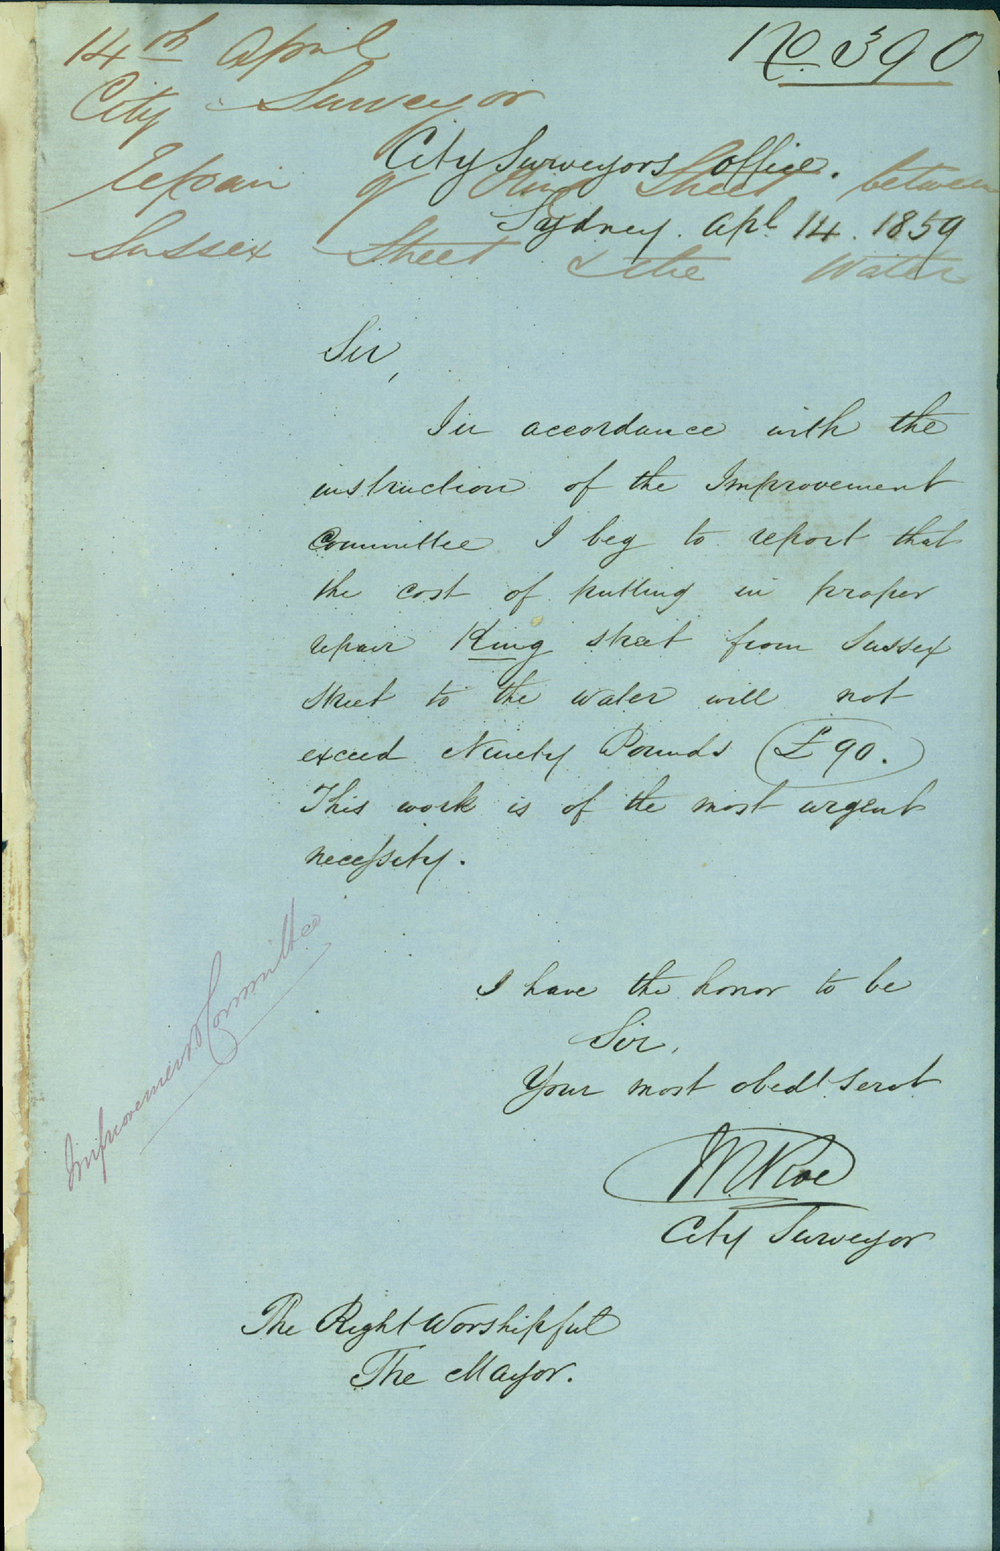 No. 390
14th April
City Surveyor
Repair of King Street between
Sussex Street & the Water
City Surveyors Office.
Sydney. Apl. 14. 1859
Sir,
In accordance with the
instruction of the Improvement
Committee I beg to report that
the cost of putting in proper
repair King street from Sussex
street to the water will not
exceed Ninety Pounds (£90.)
This work is of the most urgent
necessity.
Improvement Committee
I have the honor to be
Sir,
Your most obedt servt
City Surveyor
The Right Worshipful
The Mayor.